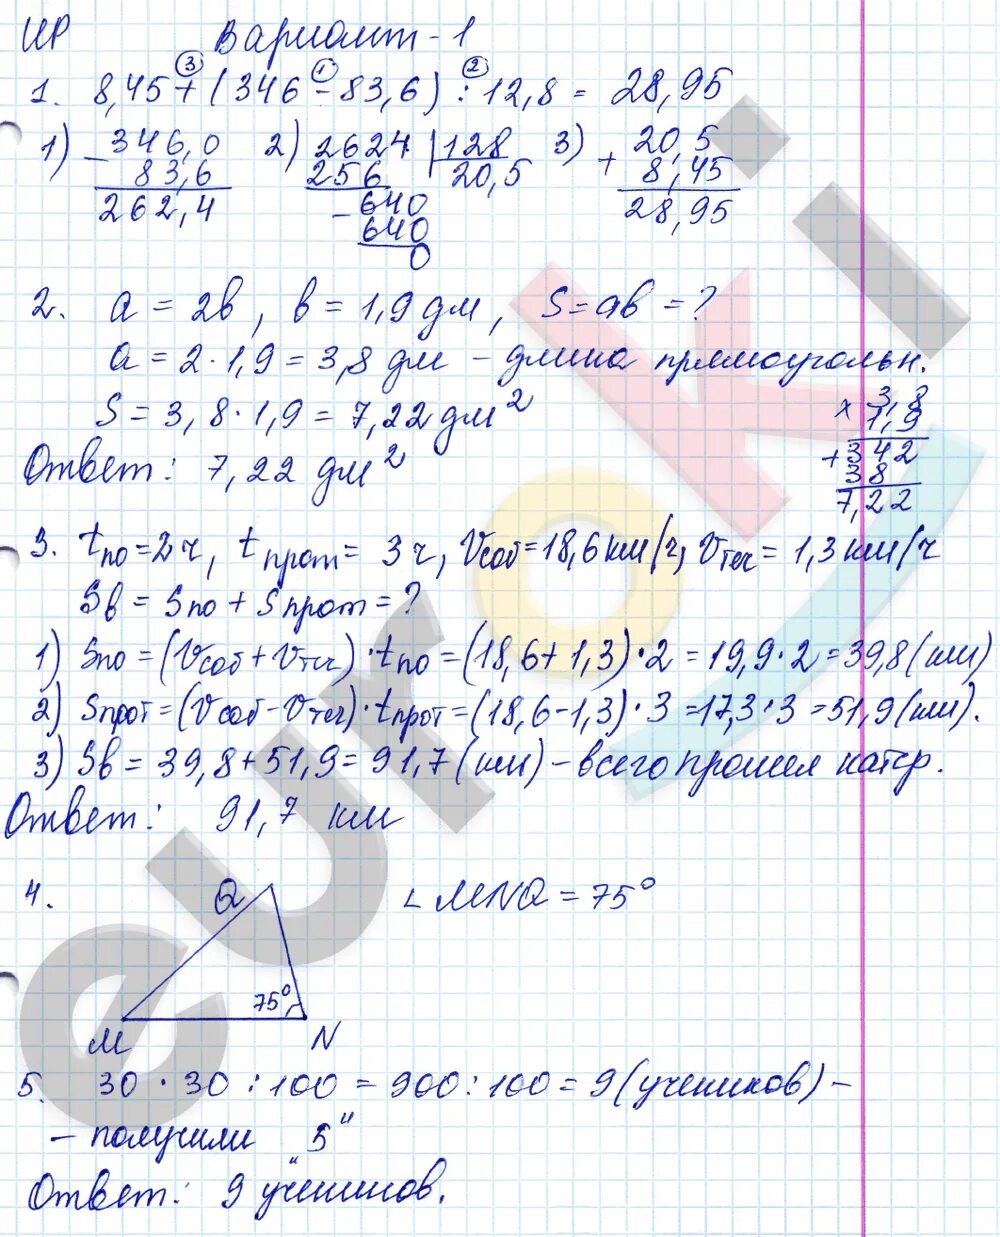 ИР Вариант-1
1. 8,45 + (346 - 83,6) : 12,8 = 28,95
③ ① ②
1) 346,0 2) 2624 | 128 3) 20,5
- 83,6 256 20,5 + 8,45
262,4 - 640 28,95
640
0
2. a = 2b, b = 1,9 дм, S = ab = ?
a = 2 · 1,9 = 3,8 дм - длина прямоугольн.
S = 3,8 · 1,9 = 7,22 дм²
Ответ: 7,22 дм²
x 3,8
1,9
+ 342
38
7,22
3. tпо = 2ч, tпрот = 3ч, Vсоб = 18,6 км/ч, Vтеч = 1,3 км/ч
Sв = Sпо + Sпрот = ?
1) Sпо = (Vсоб + Vтеч) · tпо = (18,6 + 1,3) · 2 = 19,9 · 2 = 39,8 (км)
2) Sпрот = (Vсоб - Vтеч) · tпрот = (18,6 - 1,3) · 3 = 17,3 · 3 = 51,9 (км).
3) Sв = 39,8 + 51,9 = 91,7 (км) - всего прошел катер.
Ответ: 91,7 км
4. Q ∠ MNQ = 75°
75°
M N
5. 30 · 30 : 100 = 900 : 100 = 9 (учеников) -
- получили "5"
Ответ: 9 учеников.
euroki